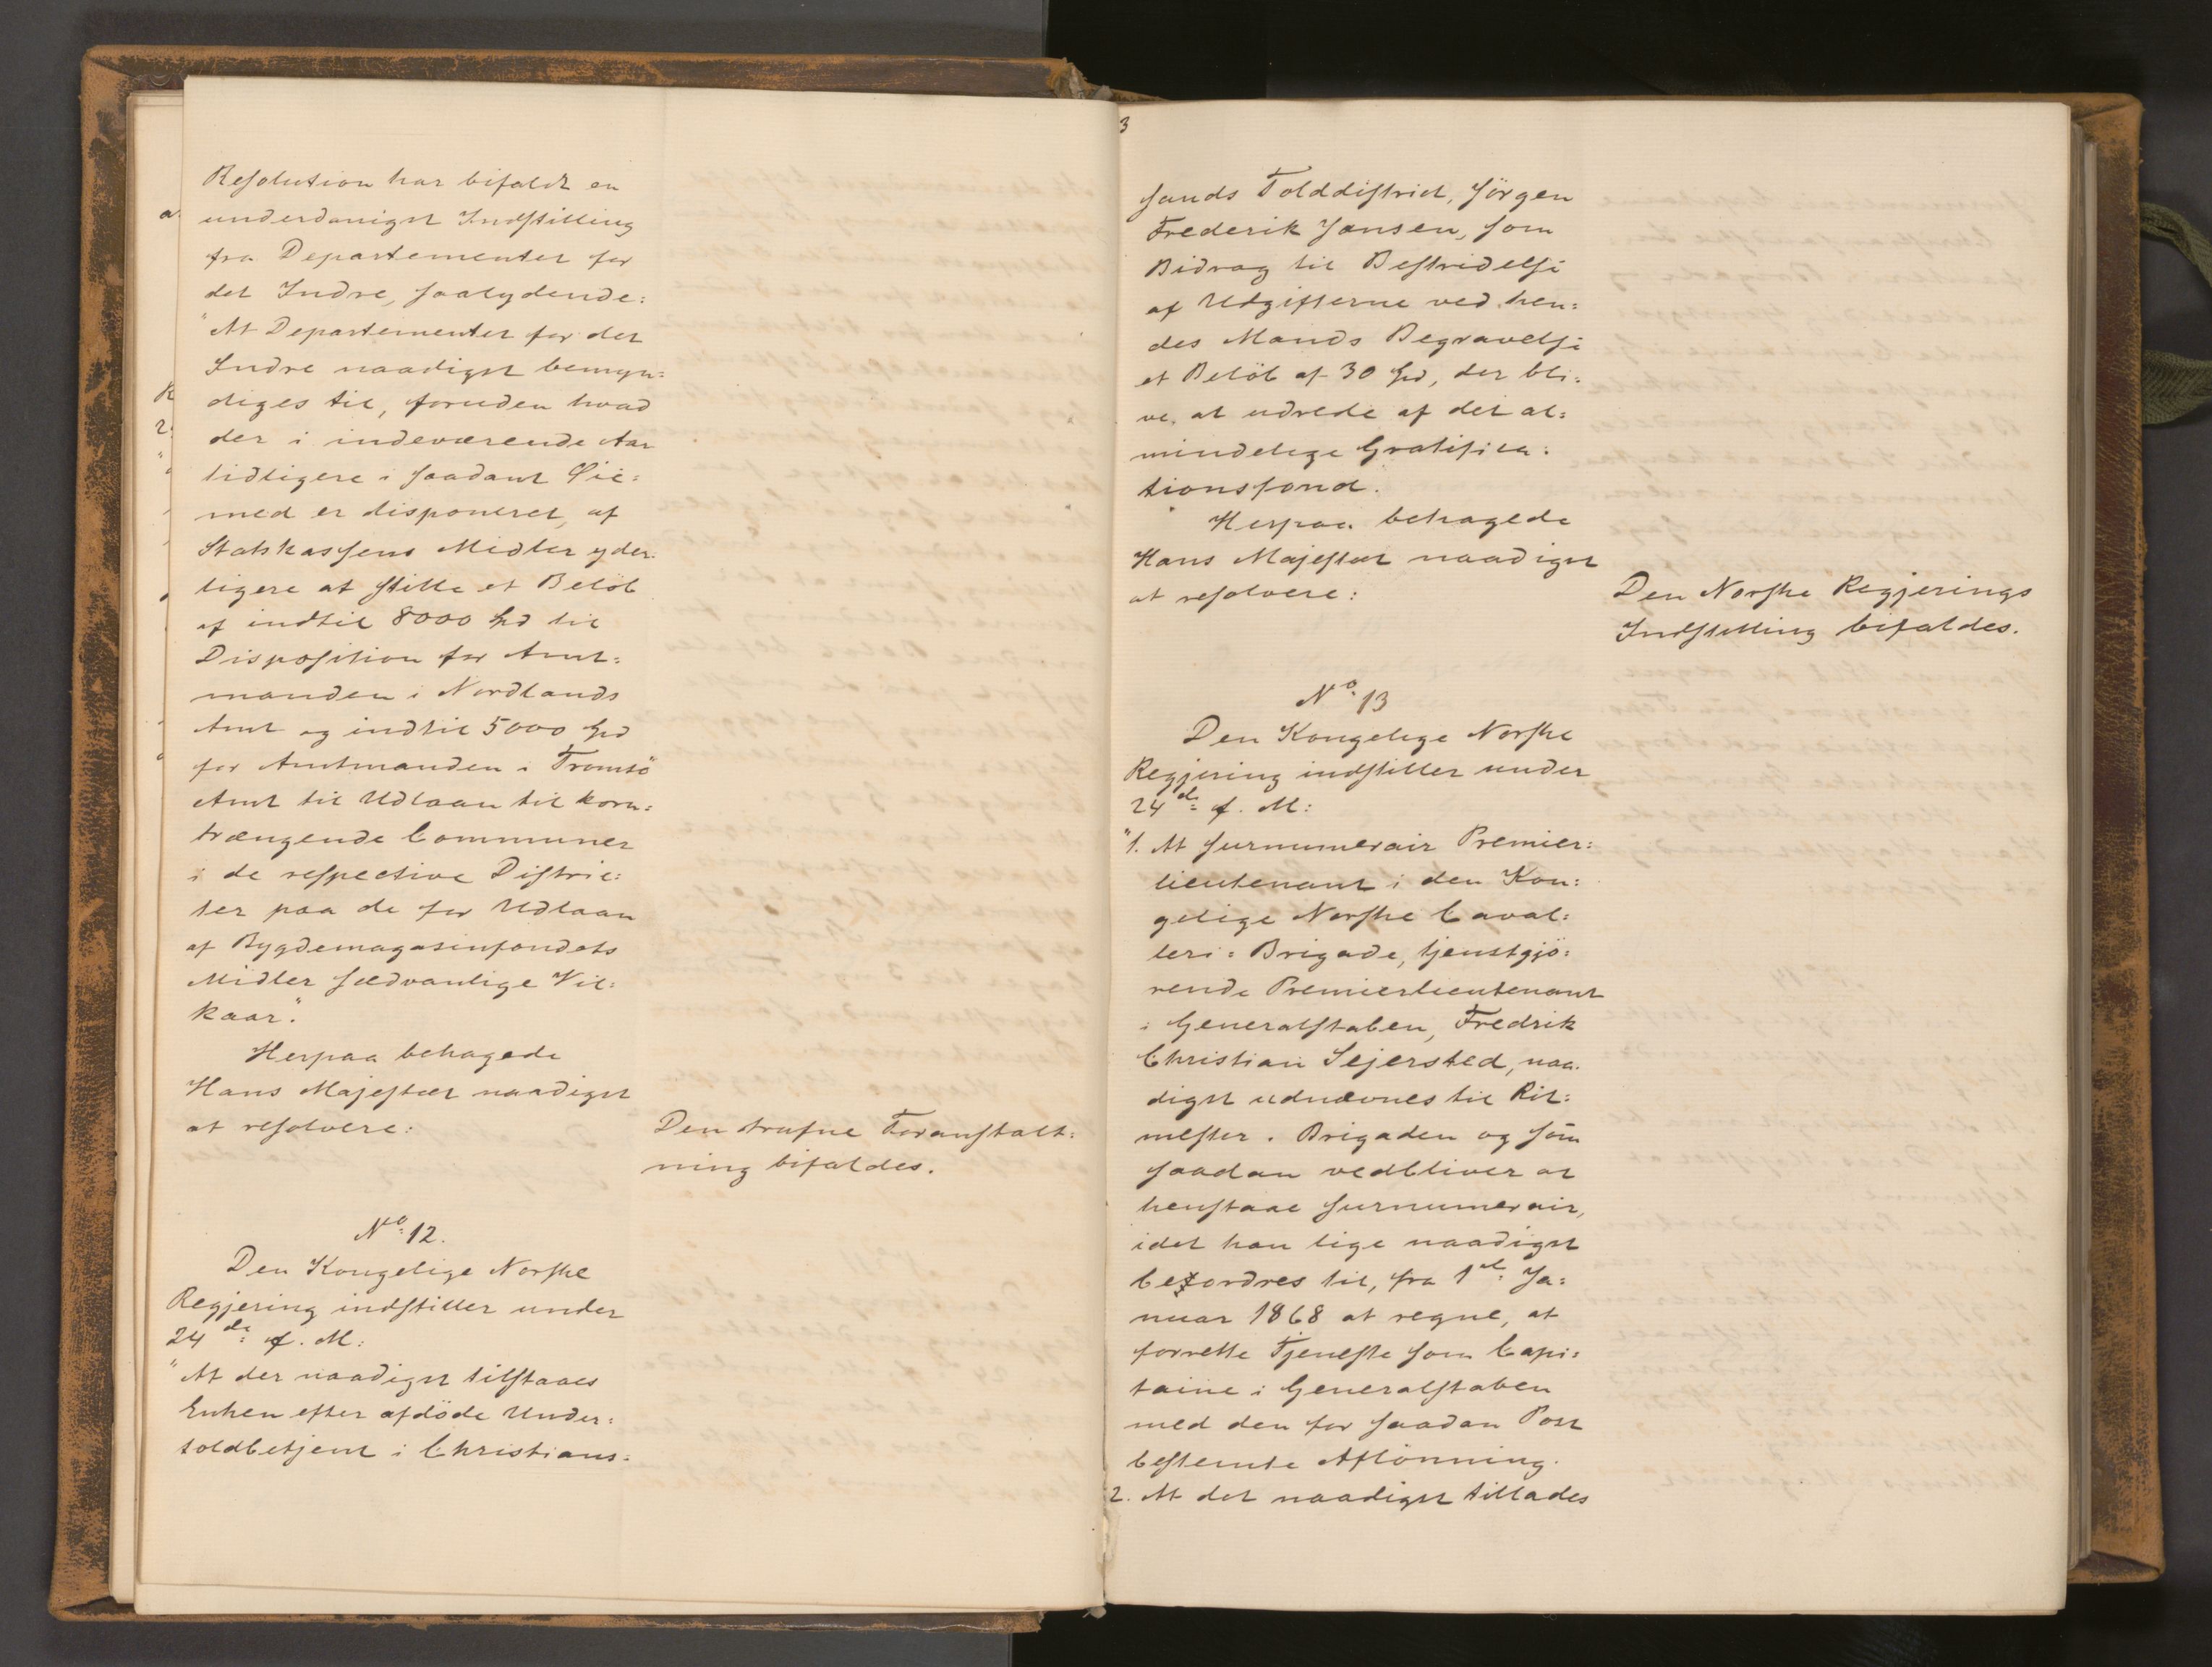 Resolution har bifaldt en
underdanigst Indstilling
fra Departementet for
det Indre, saalydende:
"At Departementet for det
Indre naadigst bemyn=
diges til, foruden hvad
der i indeværende Aar
tidligere i saadant Øie=
med er disponeret, af
Statskassens Midler yder=
ligere at stille et Beløb
af indtil 8000 Spd til
Disposition for Amt=
manden i Nordlands
Amt og indtil 5000 Spd
for Amtmanden i Tromsö
Amt til Udlaan til korn=
trængende Communer
i de respective Distric=
ter paa de for Udlaan
af Bygdemagasinfondets
Midler sædvanlige Vil=
kaar."
Herpaa behagede
Hans Majestæt naadigst
at resolvere:
Den trufne Foranstalt=
ning bifaldes.
No. 12.
Den Kongelige Norske
Regjering indstiller under
24de f. M:
"At der naadigst tilstaaes
Enken efter afdöde Under=
toldbetjent i Christians=
3
sands Tolddistrict, Jörgen
Frederik Jansen, som
Bidrag til Bestridelse
af Udgifterne ved hen=
des Mands Begravelse
et Belöb af 30 Spd, der bli=
ve at udrede af det al=
mindelige Gratifica=
tionsfond.
Herpaa behagede
Hans Majestæt naadigst
at resolvere:
Den Norske Regjerings
Indstilling bifaldes.
No. 13
Den Kongelige Norske
Regjering indstiller under
24de f. M:
"1. At surnumerair Premier=
lieutenant i den Kon=
gelige Norske Caval=
leri=Brigade, tjenstgjö=
rende Premierlieutenant
i Generalstaben, Fredrik
Christian Sejersted, naa=
digst udnævnes til Rit=
mester i Brigaden og som
saadan vedbliver at
henstaae surnumerair,
idet han lige naadigst
befordres til, fra 1ste Ja=
nuar 1868 at regne, at
forrette Tjeneste som Capi=
taine i Generalstaben
med den for saadan Post
bestemte Aflönning.
2. At det naadigst tillades